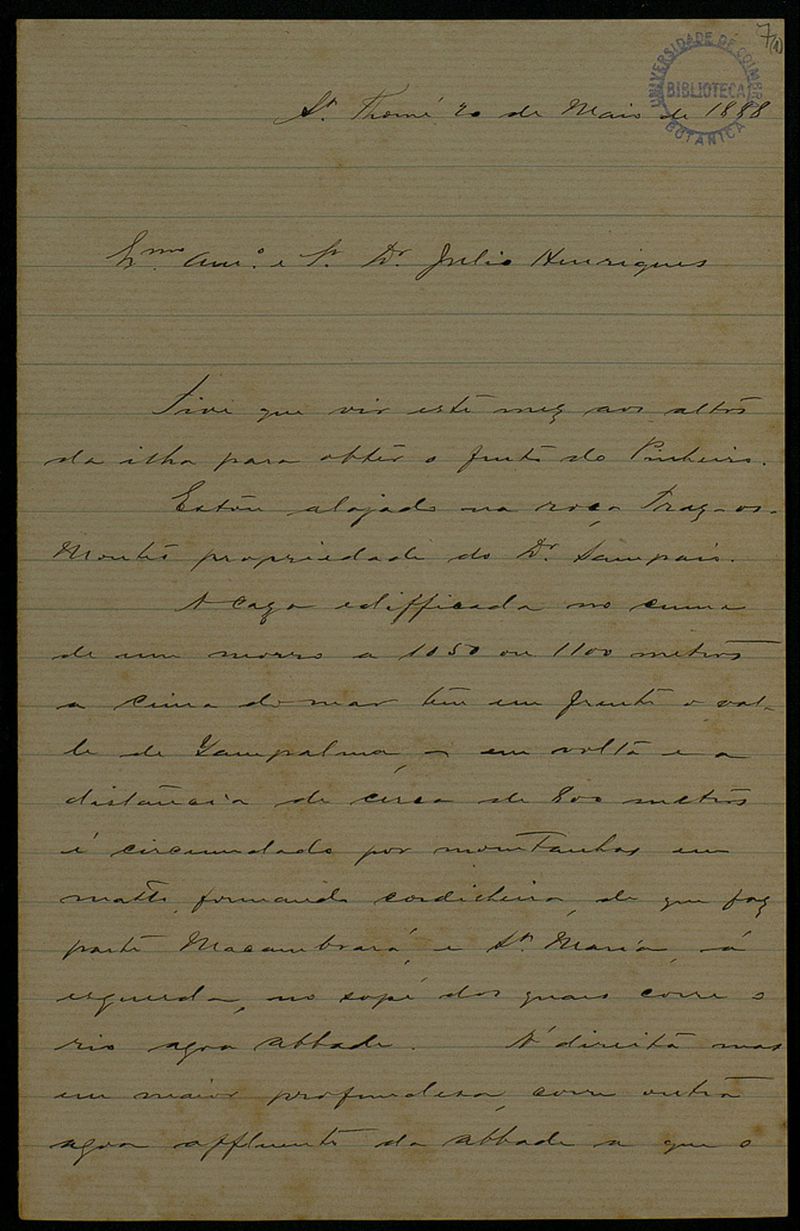 7(1)
UNIVERSIDADE DE COIMBRA
BIBLIOTECA
BOTANICA
Sn. Thomé 20 de Maio de 1888
Exmo. Amo. e Sr. Dr. Julio Henriques
Tive que vir este mez aos altos
da ilha para obter o fruto do Pinheiro.
Estou alojado na roça Traz-os-
Montes propriedade do Dr. Sampaio.
A caza edifficada no cume
de um morro a 1050 ou 1100 metros
a cima do mar tem em frente o val-
le de Yampalma, e em volta e a
distancia de cerca de 800 metros
é circumdado por montanhas em
matto, formando cordilheira, de que faz
parte Macambrará, e Sta. Maria, á
esquerda, no sopé dos quaes corre o
rio agoa Abbade. A' direita mas
em maior profundesa, corre outra
agoa affluente da Abbade a que o